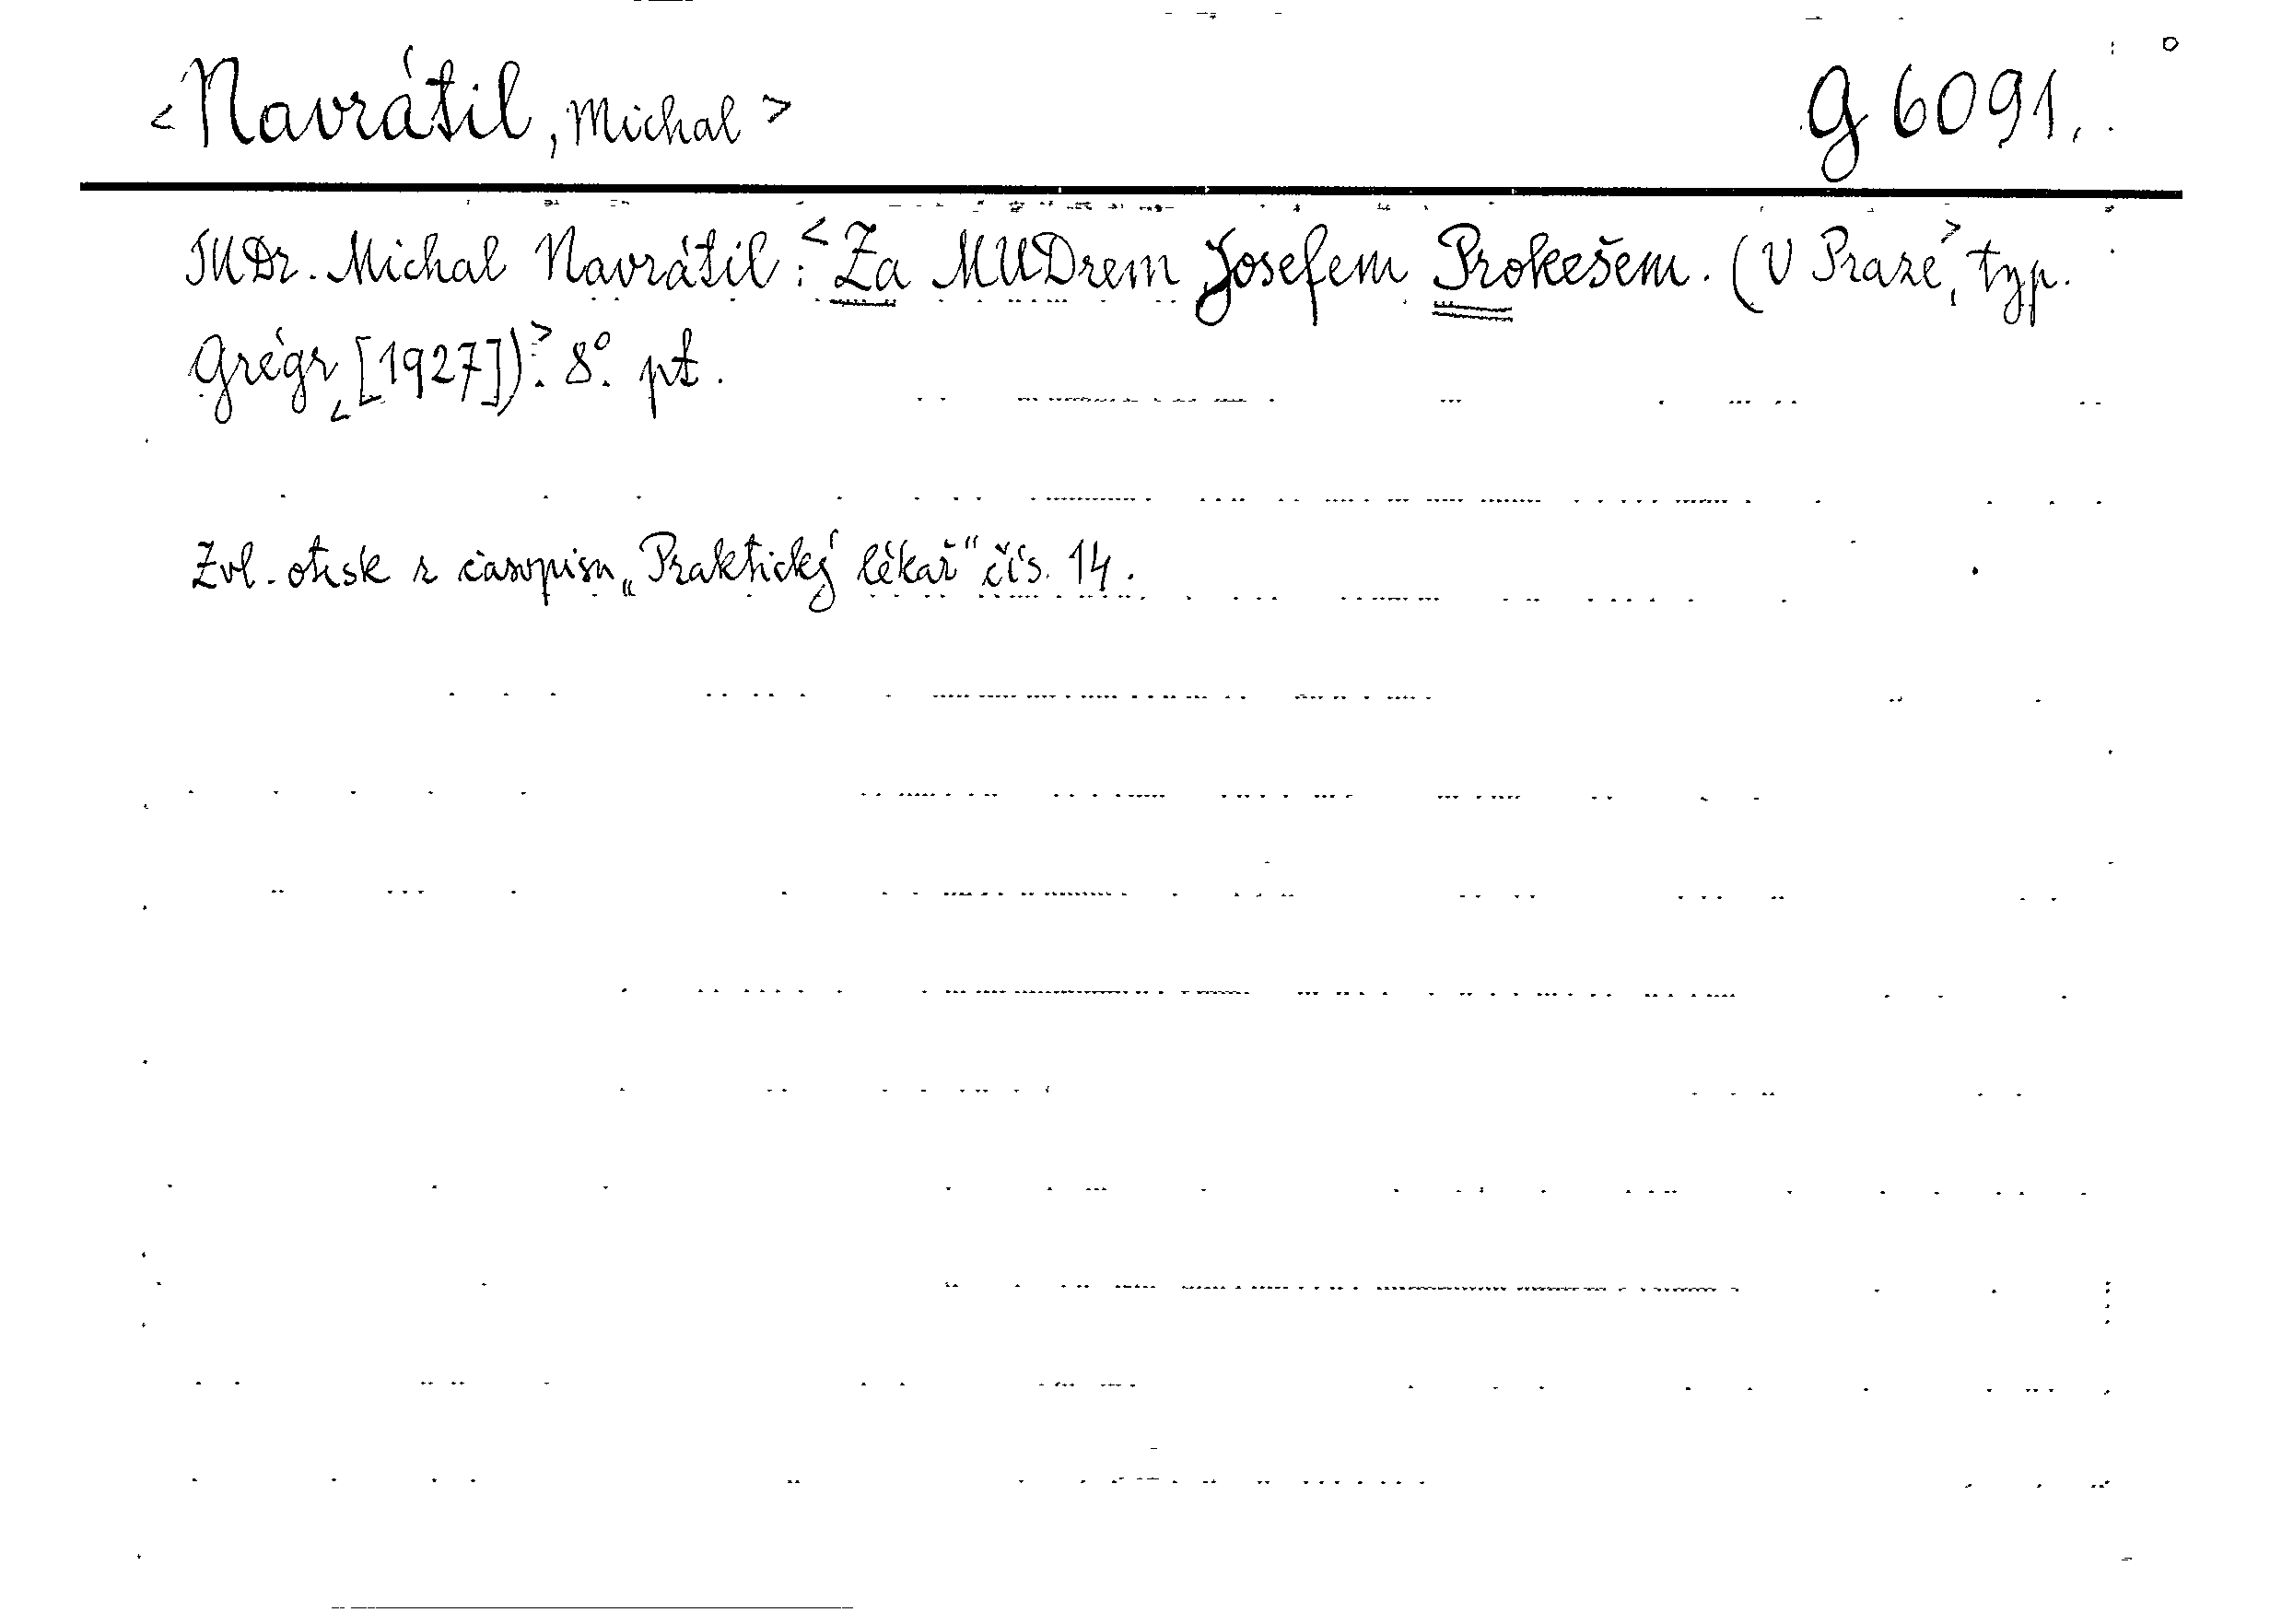 <Navrátil, Michal> G 6091.
JUDr. Michal Navrátil: <Za MUDrem Josefem Prokešem. (V Praze>, typ.
Grégr, <[1927])>. 8°. pt.
Zvl. otisk z časopisu „Praktický lékař“ čís. 14.